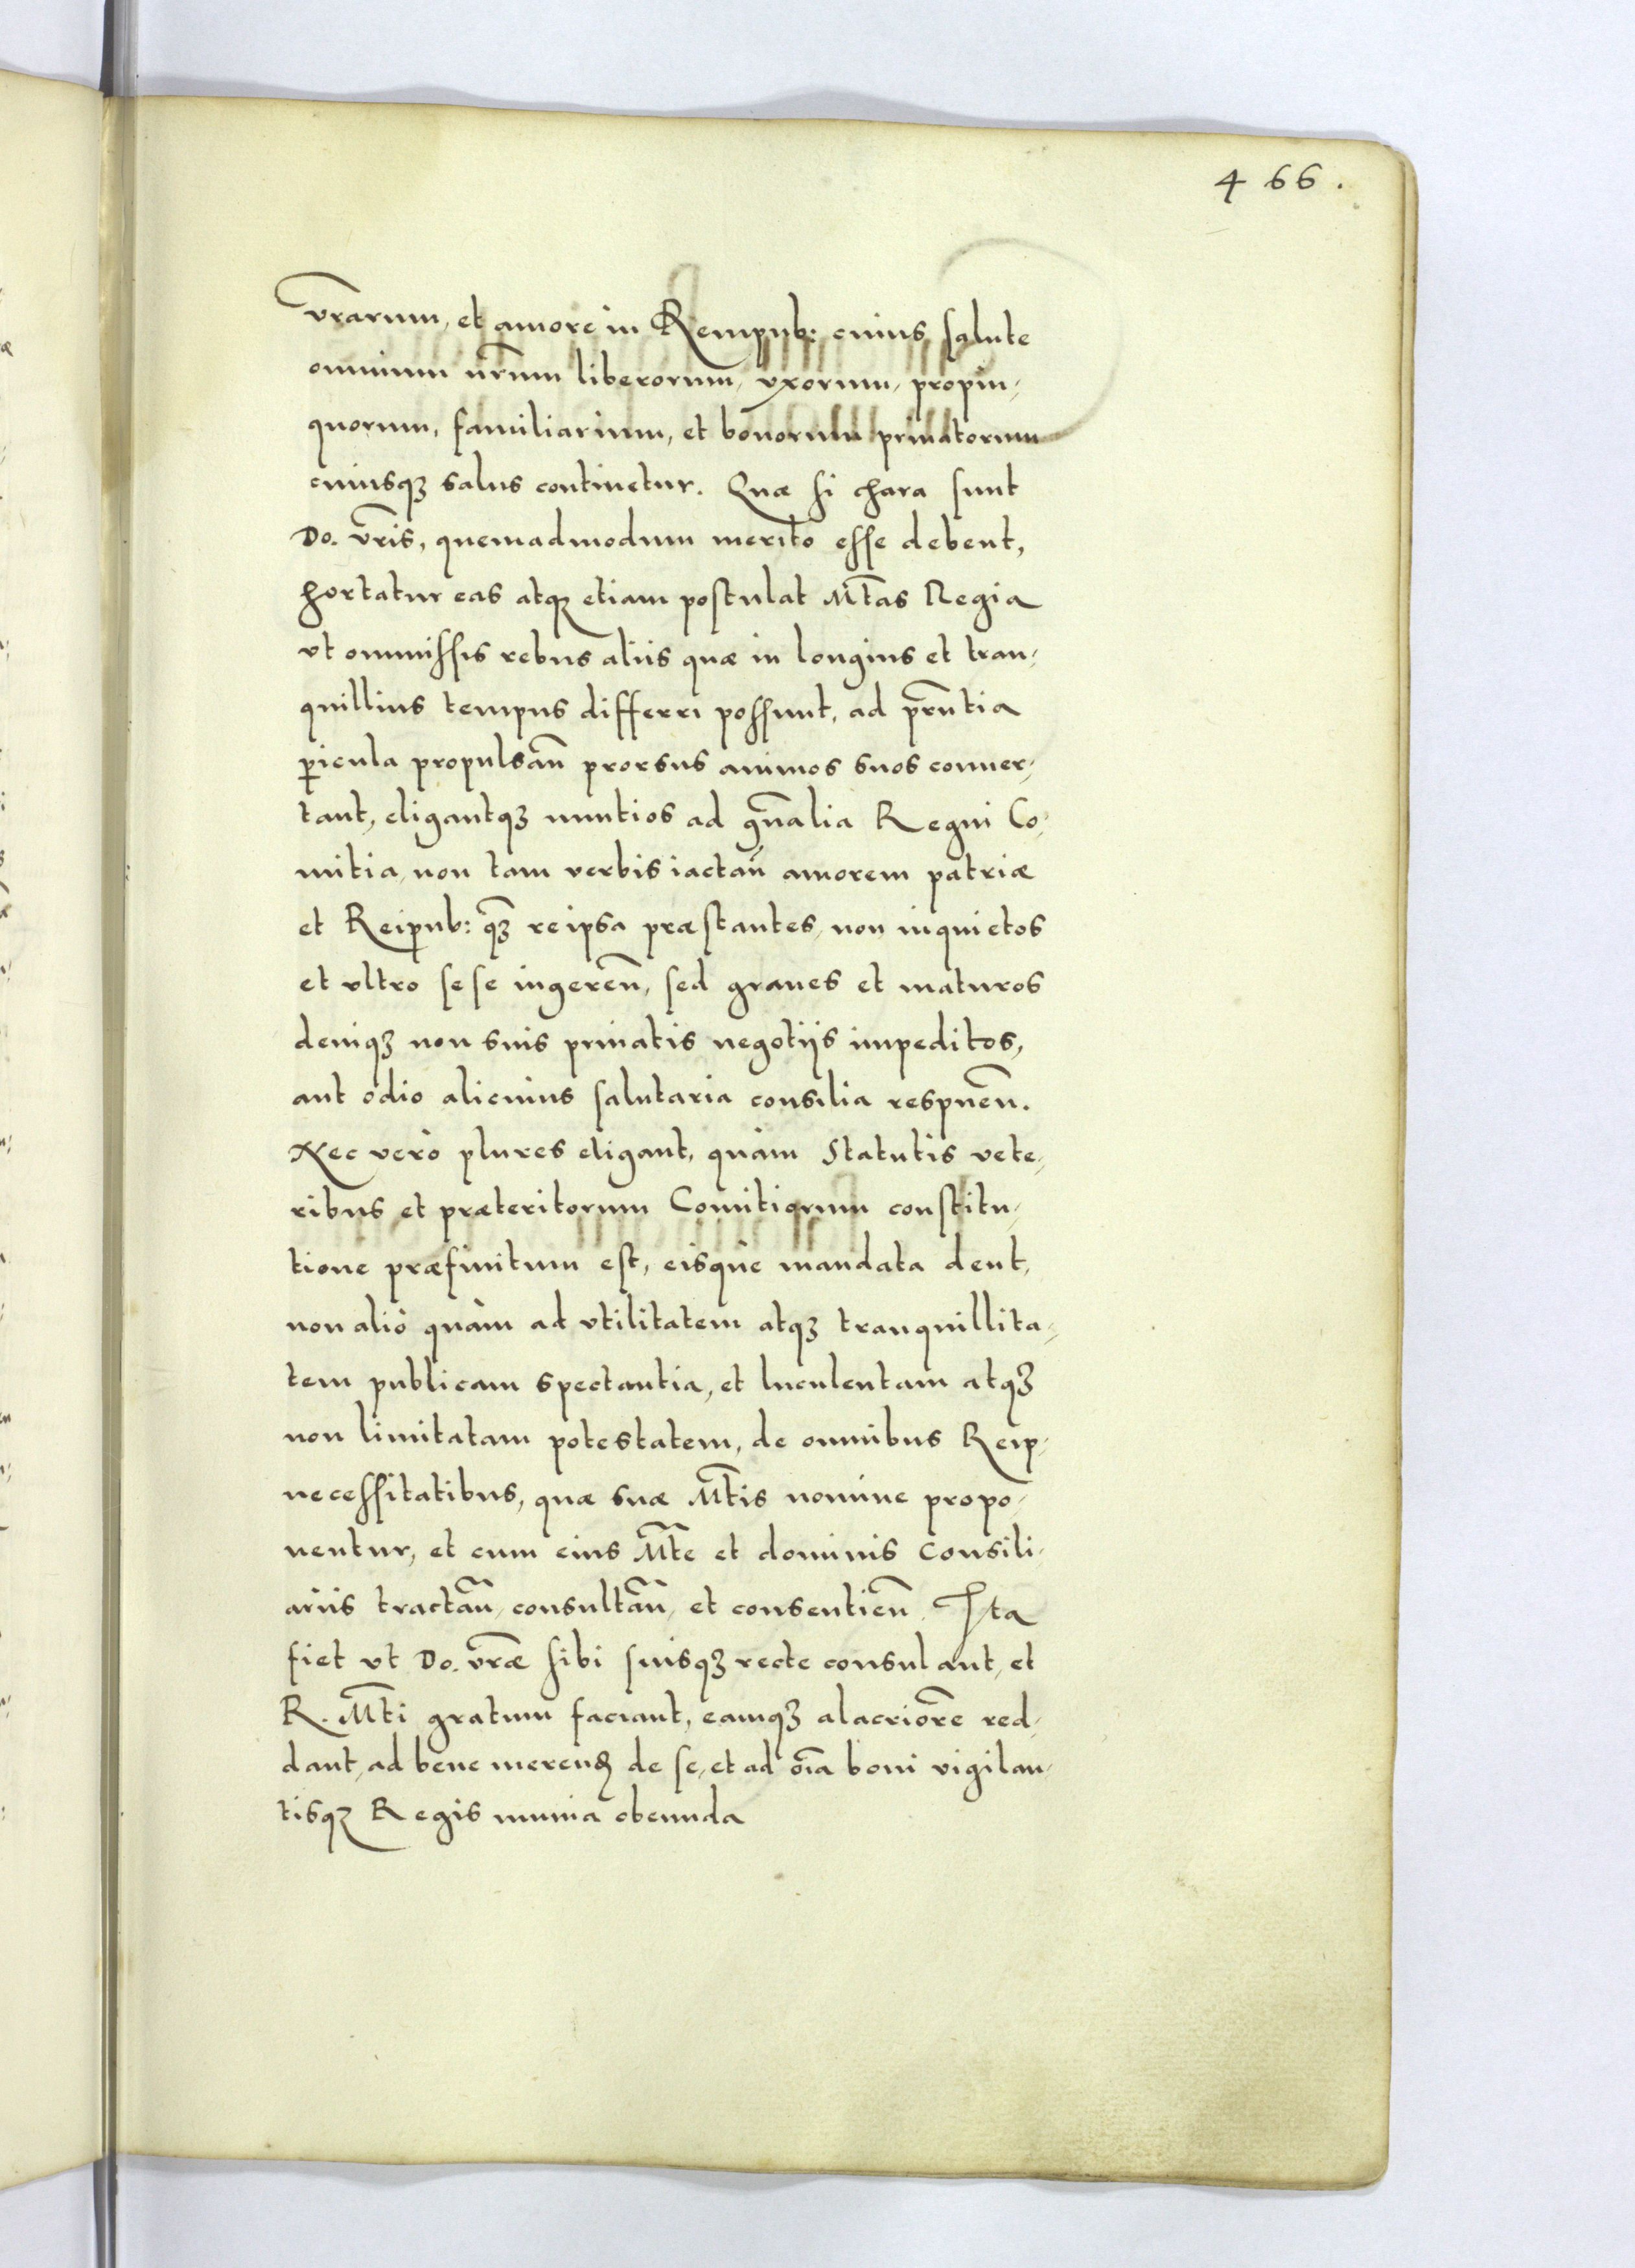 466.
vr̃arum, et amore in Rempub: cuius salute
omnium nr̃um liberorum, vxorum, propin,
quorum, familiarium, et bonorum priuatorum
cuiusqꝫ salus continetur. Quæ si chara sunt
Do. vr̃is, quemadmodum merito esse debent,
hortatur eas atqꝫ etiam postulat Mt̃as Regia
vt ommissis rebus aliis quæ in longius et tran,
quillius tempus differri possunt, ad pr̃ntia
ꝑicula propulsañ prorsus animos suos conuer,
tant, eligantqꝫ nuntios ad gñalia Regni Co,
mitia, non tam verbis iactañ amorem patriæ
et Reipub: qꝫ reipsa præstantes, non inquietos
et vltro sese ingereñ, sed graues et maturos
deniqꝫ non suis priuatis negotijs impeditos,
aut odio alicuius salutaria consilia respueñ.
Nec verò plures eligant, quàm Statutis vete,
ribus et præteritorum Comitiorum constitu,
tione præfinitum est, eisque mandata dent,
non aliò quàm ad vtilitatem atqꝫ tranquillita,
tem publicam spectantia, et luculentam atqꝫ
non limitatam potestatem, de omnibus Reip,
necessitatibus, quæ suæ Mt̃is nomine propo,
nentur, et cum eius Mt̃e et dominis Consili,
ariis tractañ, consultañ, et consentieñ. Ita
fiet vt Do. vr̃æ sibi suisqꝫ recte consulant, et
R. Mt̃i gratum faciant, eamqꝫ alacriorẽ red,
dant, ad bene merenð de se, et ad oĩa boni vigilan,
tisqꝫ Regis munia obeunda